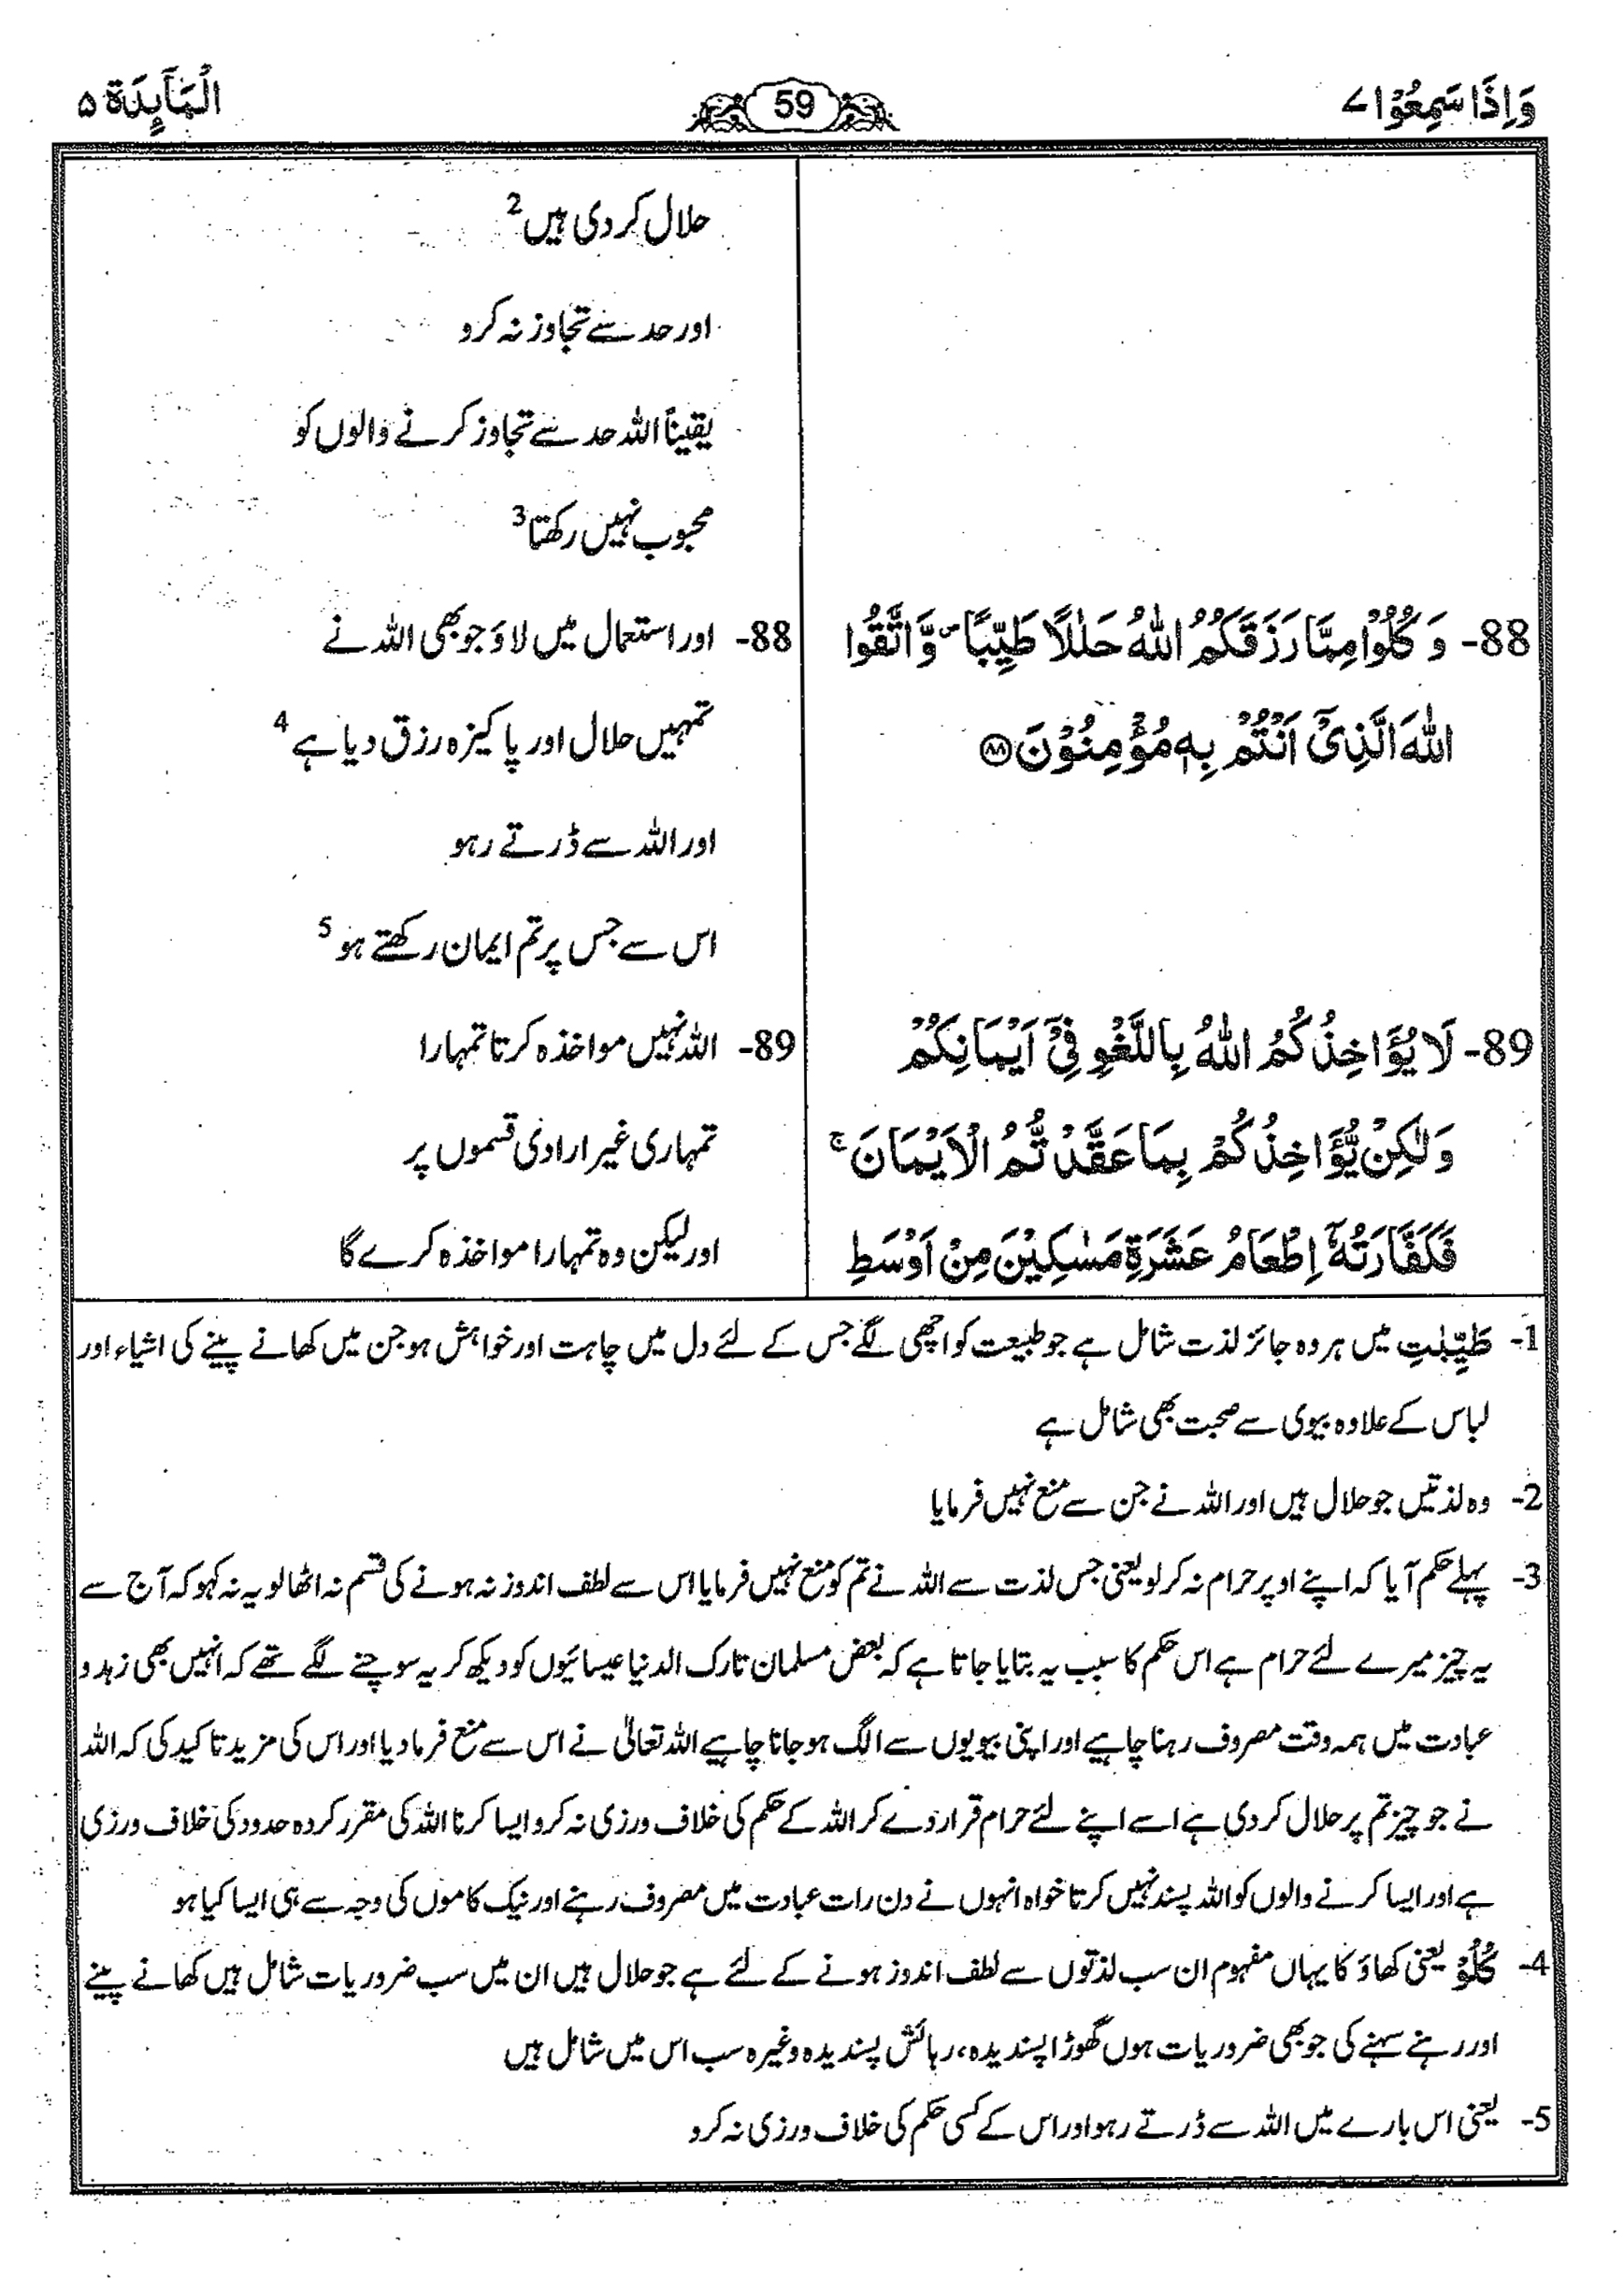 وَاِذَا سَمِعُوْا ۷
59
الْمَآىِٕدَة ۵
حلال کر دی ہیں 2
اور حد سے تجاوز نہ کرو
یقیناً اللہ حد سے تجاوز کرنے والوں کو
محبوب نہیں رکھتا 3
88- وَ كُلُوْا مِمَّا رَزَقَكُمُ اللّٰهُ حَلٰلًا طَيِّبًا ۪ وَّ اتَّقُوا
اللّٰهَ الَّذِيْۤ اَنْتُمْ بِهٖ مُؤْمِنُوْنَ ﴿۸۸﴾
88- اور استعمال میں لاؤ جو بھی اللہ نے
تمہیں حلال اور پاکیزہ رزق دیا ہے 4
اور اللہ سے ڈرتے رہو
اس سے جس پر تم ایمان رکھتے ہو 5
89- لَا يُؤَاخِذُكُمُ اللّٰهُ بِاللَّغْوِ فِيْۤ اَيْمَانِكُمْ
وَلٰكِنْ يُّؤَاخِذُكُمْ بِمَا عَقَّدْتُّمُ الْاَيْمَانَ ۚ
فَكَفَّارَتُهٗۤ اِطْعَامُ عَشَرَةِ مَسٰكِيْنَ مِنْ اَوْسَطِ
89- اللہ نہیں مواخذہ کرتا تمہارا
تمہاری غیر ارادی قسموں پر
اور لیکن وہ تمہارا مواخذہ کرے گا
1- طَيِّبٰتِ میں ہر وہ جائز لذت شامل ہے جو طبیعت کو اچھی لگے جس کے لئے دل میں چاہت اور خواہش ہو جن میں کھانے پینے کی اشیاء اور
لباس کے علاوہ بیوی سے صحبت بھی شامل ہے
2- وہ لذتیں جو حلال ہیں اور اللہ نے جن سے منع نہیں فرمایا
3- پہلے حکم آیا کہ اپنے اوپر حرام نہ کر لو یعنی جس لذت سے اللہ نے تم کو منع نہیں فرمایا اس سے لطف اندوز نہ ہونے کی قسم نہ اٹھا لو یہ نہ کہو کہ آج سے
یہ چیز میرے لئے حرام ہے اس حکم کا سبب یہ بتایا جاتا ہے کہ بعض مسلمان تارک الدنیا عیسائیوں کو دیکھ کر یہ سوچنے لگے تھے کہ انہیں بھی زہد و
عبادت میں ہمہ وقت مصروف رہنا چاہیے اور اپنی بیویوں سے الگ ہو جانا چاہیے اللہ تعالیٰ نے اس سے منع فرما دیا اور اس کی مزید تاکید کی کہ اللہ
نے جو چیز تم پر حلال کر دی ہے اسے اپنے لئے حرام قرار دے کر اللہ کے حکم کی خلاف ورزی نہ کرو ایسا کرنا اللہ کی مقرر کردہ حدود کی خلاف ورزی
ہے اور ایسا کرنے والوں کو اللہ پسند نہیں کرتا خواہ انہوں نے دن رات عبادت میں مصروف رہنے اور نیک کاموں کی وجہ سے ہی ایسا کیا ہو
4- كُلُوْ یعنی کھاؤ کا یہاں مفہوم ان سب لذتوں سے لطف اندوز ہونے کے لئے ہے جو حلال ہیں ان میں سب ضروریات شامل ہیں کھانے پینے
اور رہنے سہنے کی جو بھی ضروریات ہوں گھوڑا پسندیدہ، رہائش پسندیدہ وغیرہ سب اس میں شامل ہیں
5- یعنی اس بارے میں اللہ سے ڈرتے رہو اور اس کے کسی حکم کی خلاف ورزی نہ کرو